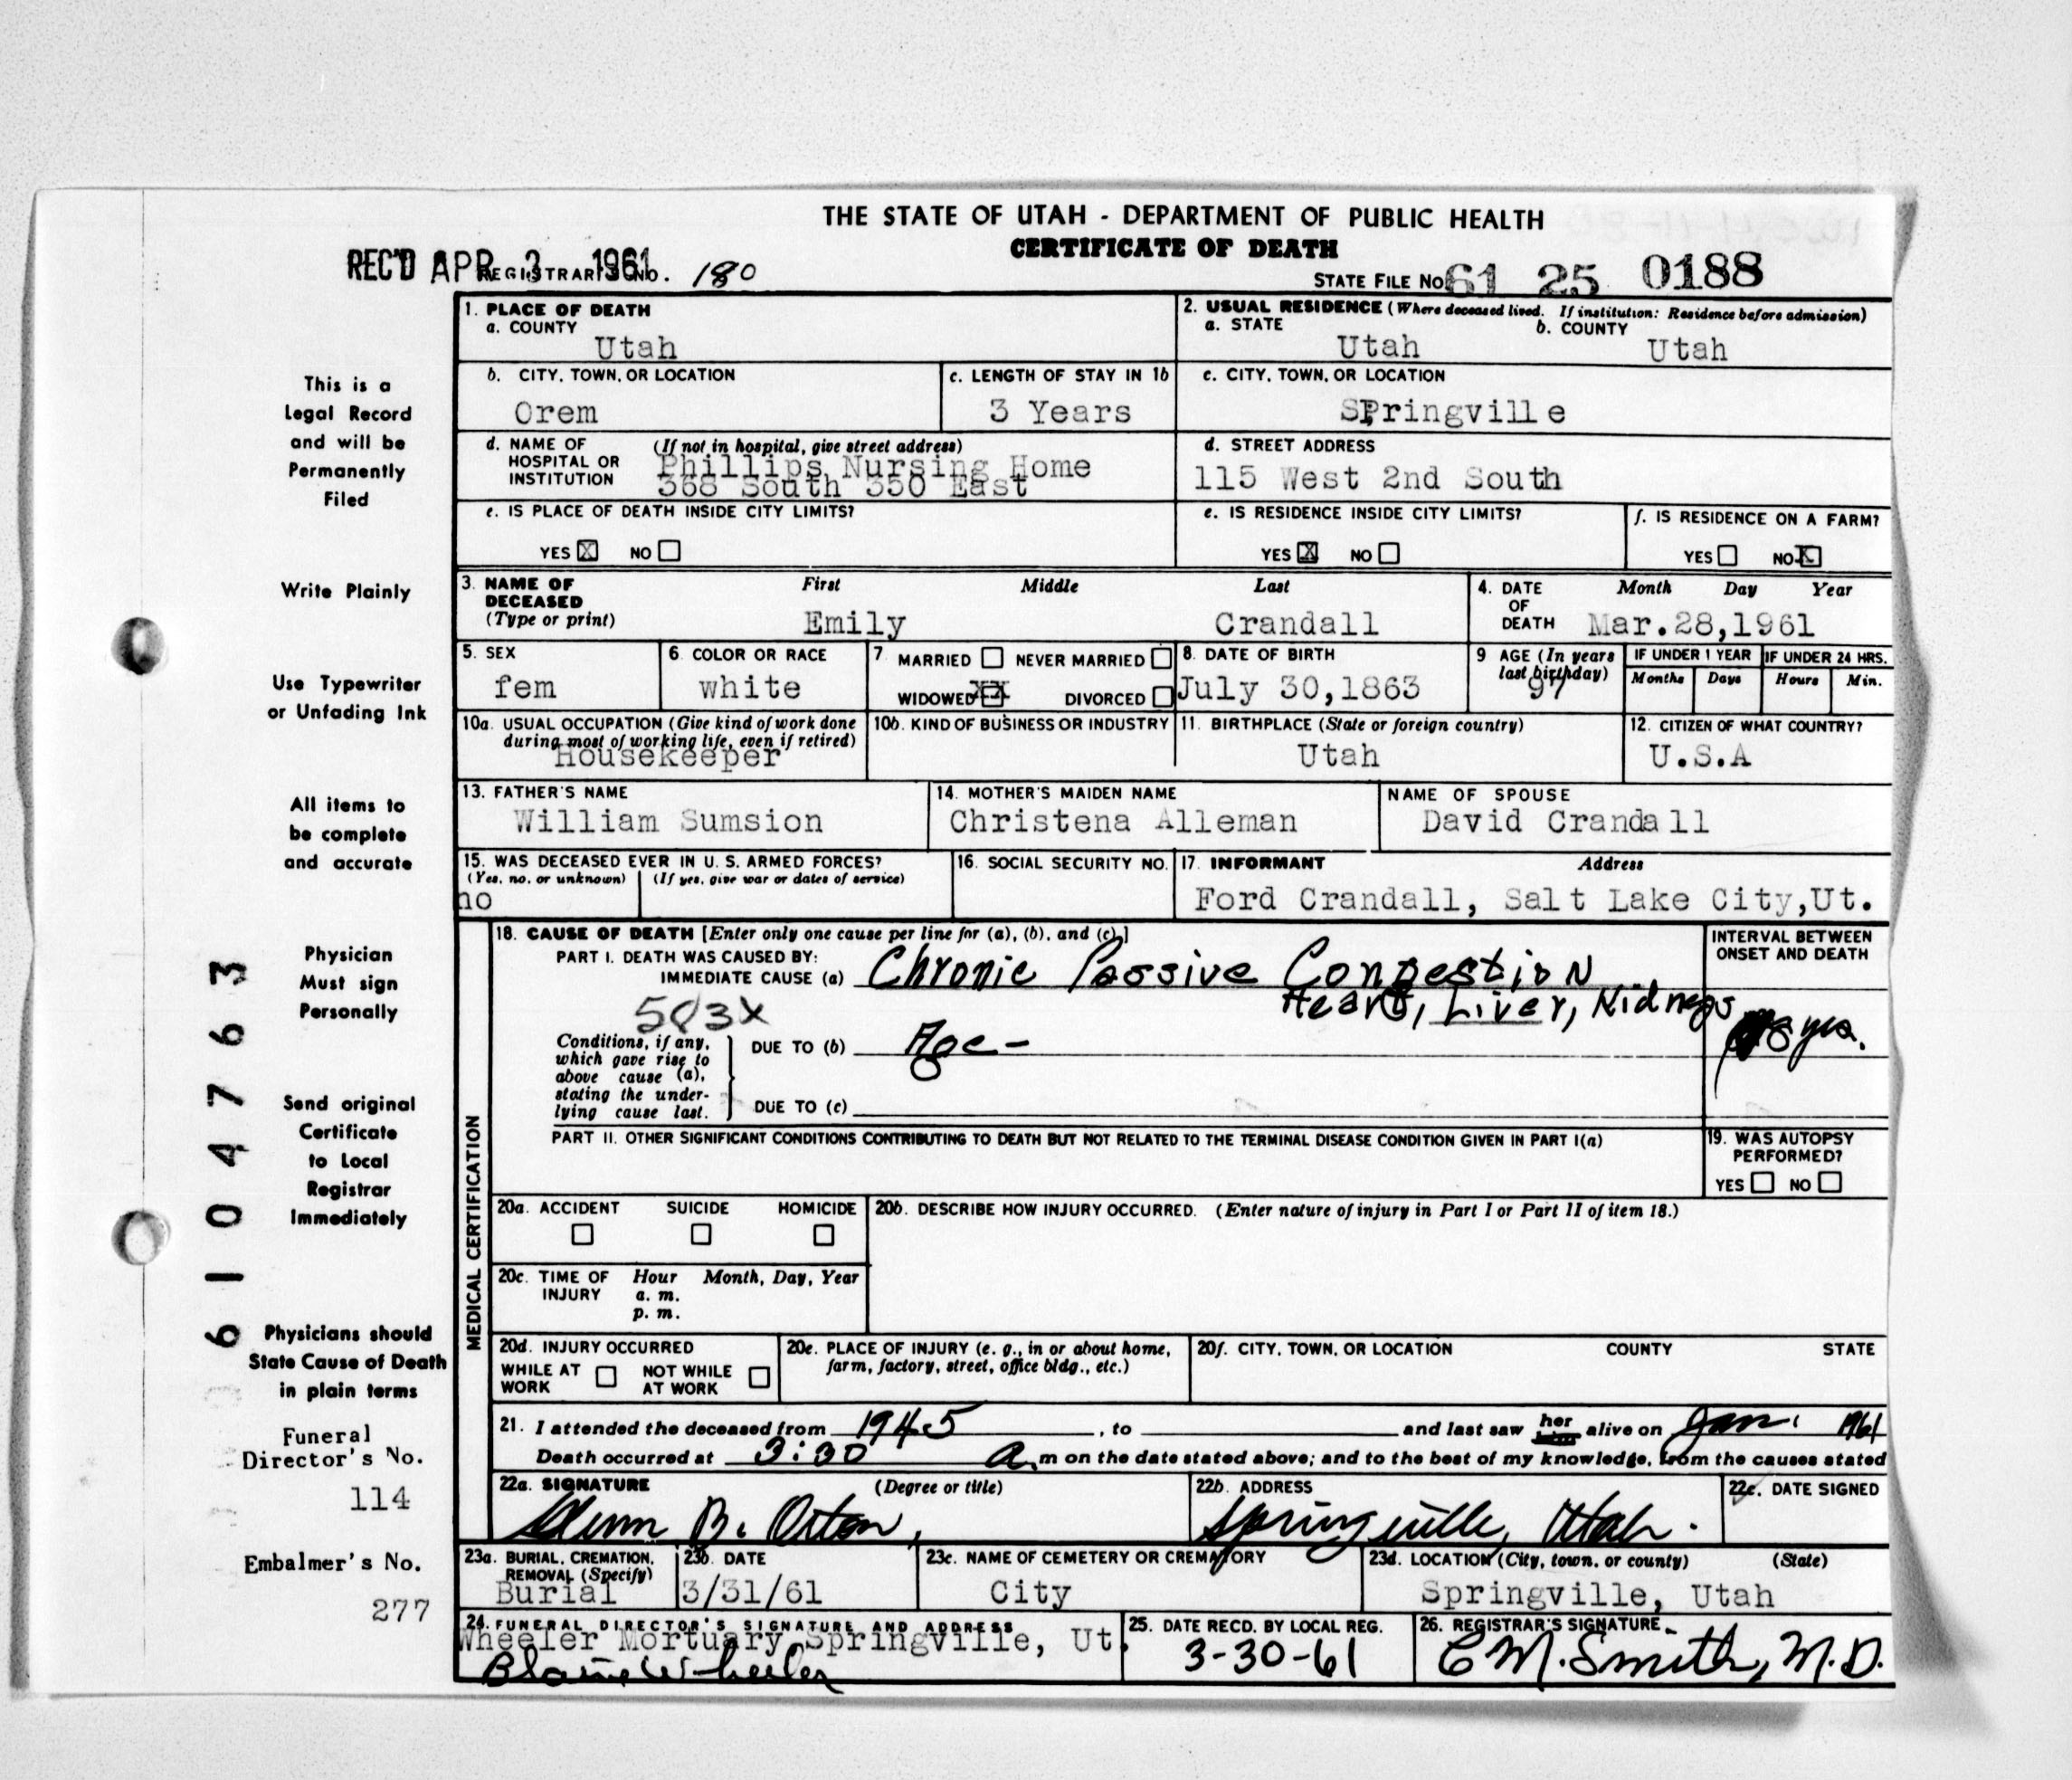 THE STATE OF UTAH - DEPARTMENT OF PUBLIC HEALTH
CERTIFICATE OF DEATH
REC'D APR 3 1961 REGISTRAR'S NO. 180
STATE FILE NO. 61 25 0188
1. PLACE OF DEATH
a. COUNTY
Utah
2. USUAL RESIDENCE (Where deceased lived. If institution: Residence before admission)
a. STATE b. COUNTY
Utah Utah
b. CITY, TOWN, OR LOCATION
Orem
c. LENGTH OF STAY IN 1b
3 Years
c. CITY, TOWN, OR LOCATION
Springville
d. NAME OF (If not in hospital, give street address)
HOSPITAL OR
INSTITUTION
Phillips Nursing Home
368 South 350 East
d. STREET ADDRESS
115 West 2nd South
e. IS PLACE OF DEATH INSIDE CITY LIMITS?
YES X NO
e. IS RESIDENCE INSIDE CITY LIMITS?
YES X NO
f. IS RESIDENCE ON A FARM?
YES NO X
3. NAME OF First Middle Last
DECEASED
(Type or print)
Emily Crandall
4. DATE Month Day Year
OF
DEATH Mar.28,1961
5. SEX
fem
6. COLOR OR RACE
white
7 MARRIED NEVER MARRIED
WIDOWED XX DIVORCED
8. DATE OF BIRTH
July 30,1863
9 AGE (In years
last birthday)
97
IF UNDER 1 YEAR IF UNDER 24 HRS.
Months Days Hours Min.
10a. USUAL OCCUPATION (Give kind of work done
during most of working life, even if retired)
Housekeeper
10b. KIND OF BUSINESS OR INDUSTRY
11. BIRTHPLACE (State or foreign country)
Utah
12. CITIZEN OF WHAT COUNTRY?
U.S.A
13. FATHER'S NAME
William Sumsion
14. MOTHER'S MAIDEN NAME
Christena Alleman
NAME OF SPOUSE
David Crandall
15. WAS DECEASED EVER IN U. S. ARMED FORCES?
(Yes, no, or unknown) (If yes, give war or dates of service)
no
16. SOCIAL SECURITY NO.
17. INFORMANT Address
Ford Crandall, Salt Lake City,Ut.
MEDICAL CERTIFICATION
18. CAUSE OF DEATH [Enter only one cause per line for (a), (b), and (c).]
INTERVAL BETWEEN
ONSET AND DEATH
PART I. DEATH WAS CAUSED BY:
IMMEDIATE CAUSE (a) Chronic Passive Congestion
Heart, Liver, Kidneys
8 yrs.
Conditions, if any,
which gave rise to
above cause (a),
stating the under-
lying cause last.
DUE TO (b) Age -
DUE TO (c)
PART II. OTHER SIGNIFICANT CONDITIONS CONTRIBUTING TO DEATH BUT NOT RELATED TO THE TERMINAL DISEASE CONDITION GIVEN IN PART I(a)
19. WAS AUTOPSY
PERFORMED?
YES NO
20a. ACCIDENT SUICIDE HOMICIDE
20b. DESCRIBE HOW INJURY OCCURRED. (Enter nature of injury in Part I or Part II of item 18.)
20c. TIME OF Hour Month, Day, Year
INJURY a. m.
p. m.
20d. INJURY OCCURRED
WHILE AT NOT WHILE
WORK AT WORK
20e. PLACE OF INJURY (e. g., in or about home,
farm, factory, street, office bldg., etc.)
20f. CITY, TOWN, OR LOCATION COUNTY STATE
21. I attended the deceased from 1945, to and last saw her alive on Jan. 1961
Death occurred at 3:30 a.m on the date stated above; and to the best of my knowledge, from the causes stated
22a. SIGNATURE (Degree or title)
Glenn B. Orton,
22b. ADDRESS
Springville, Utah.
22c. DATE SIGNED
23a. BURIAL, CREMATION,
REMOVAL (Specify)
Burial
23b. DATE
3/31/61
23c. NAME OF CEMETERY OR CREMATORY
City
23d. LOCATION (City, town, or county) (State)
Springville, Utah
24. FUNERAL DIRECTOR'S SIGNATURE AND ADDRESS
Wheeler Mortuary, Springville, Ut.
Blaine Wheeler
25. DATE RECD. BY LOCAL REG.
3-30-61
26. REGISTRAR'S SIGNATURE
C M. Smith, M.D.
This is a
Legal Record
and will be
Permanently
Filed
Write Plainly
Use Typewriter
or Unfading Ink
All items to
be complete
and accurate
Physician
Must sign
Personally
Send original
Certificate
to Local
Registrar
Immediately
Physicians should
State Cause of Death
in plain terms
Funeral
Director's No.
114
Embalmer's No.
277
6104763